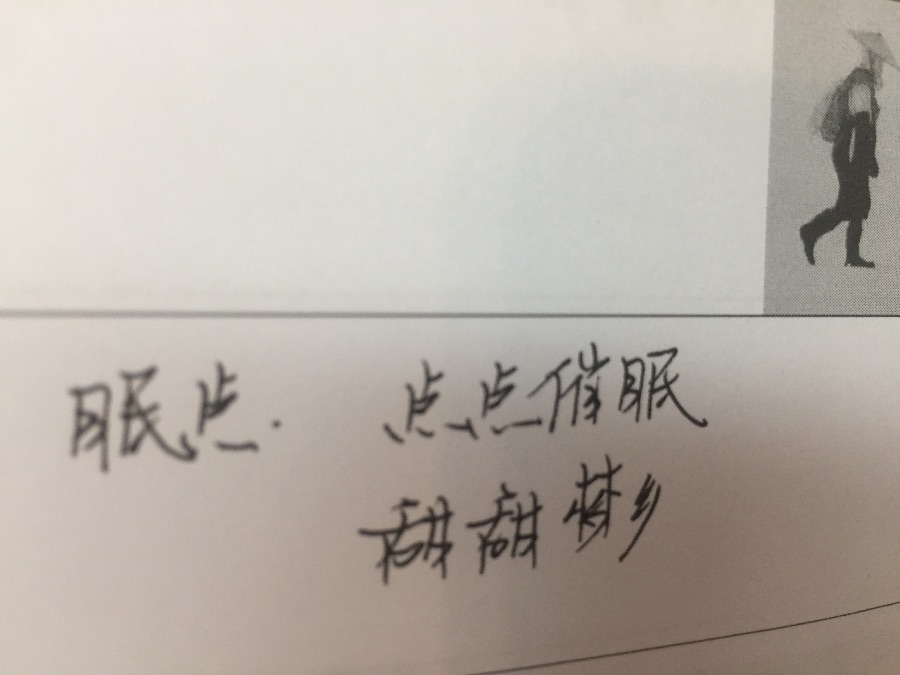 眠点. 点点催眠
甜甜梦乡